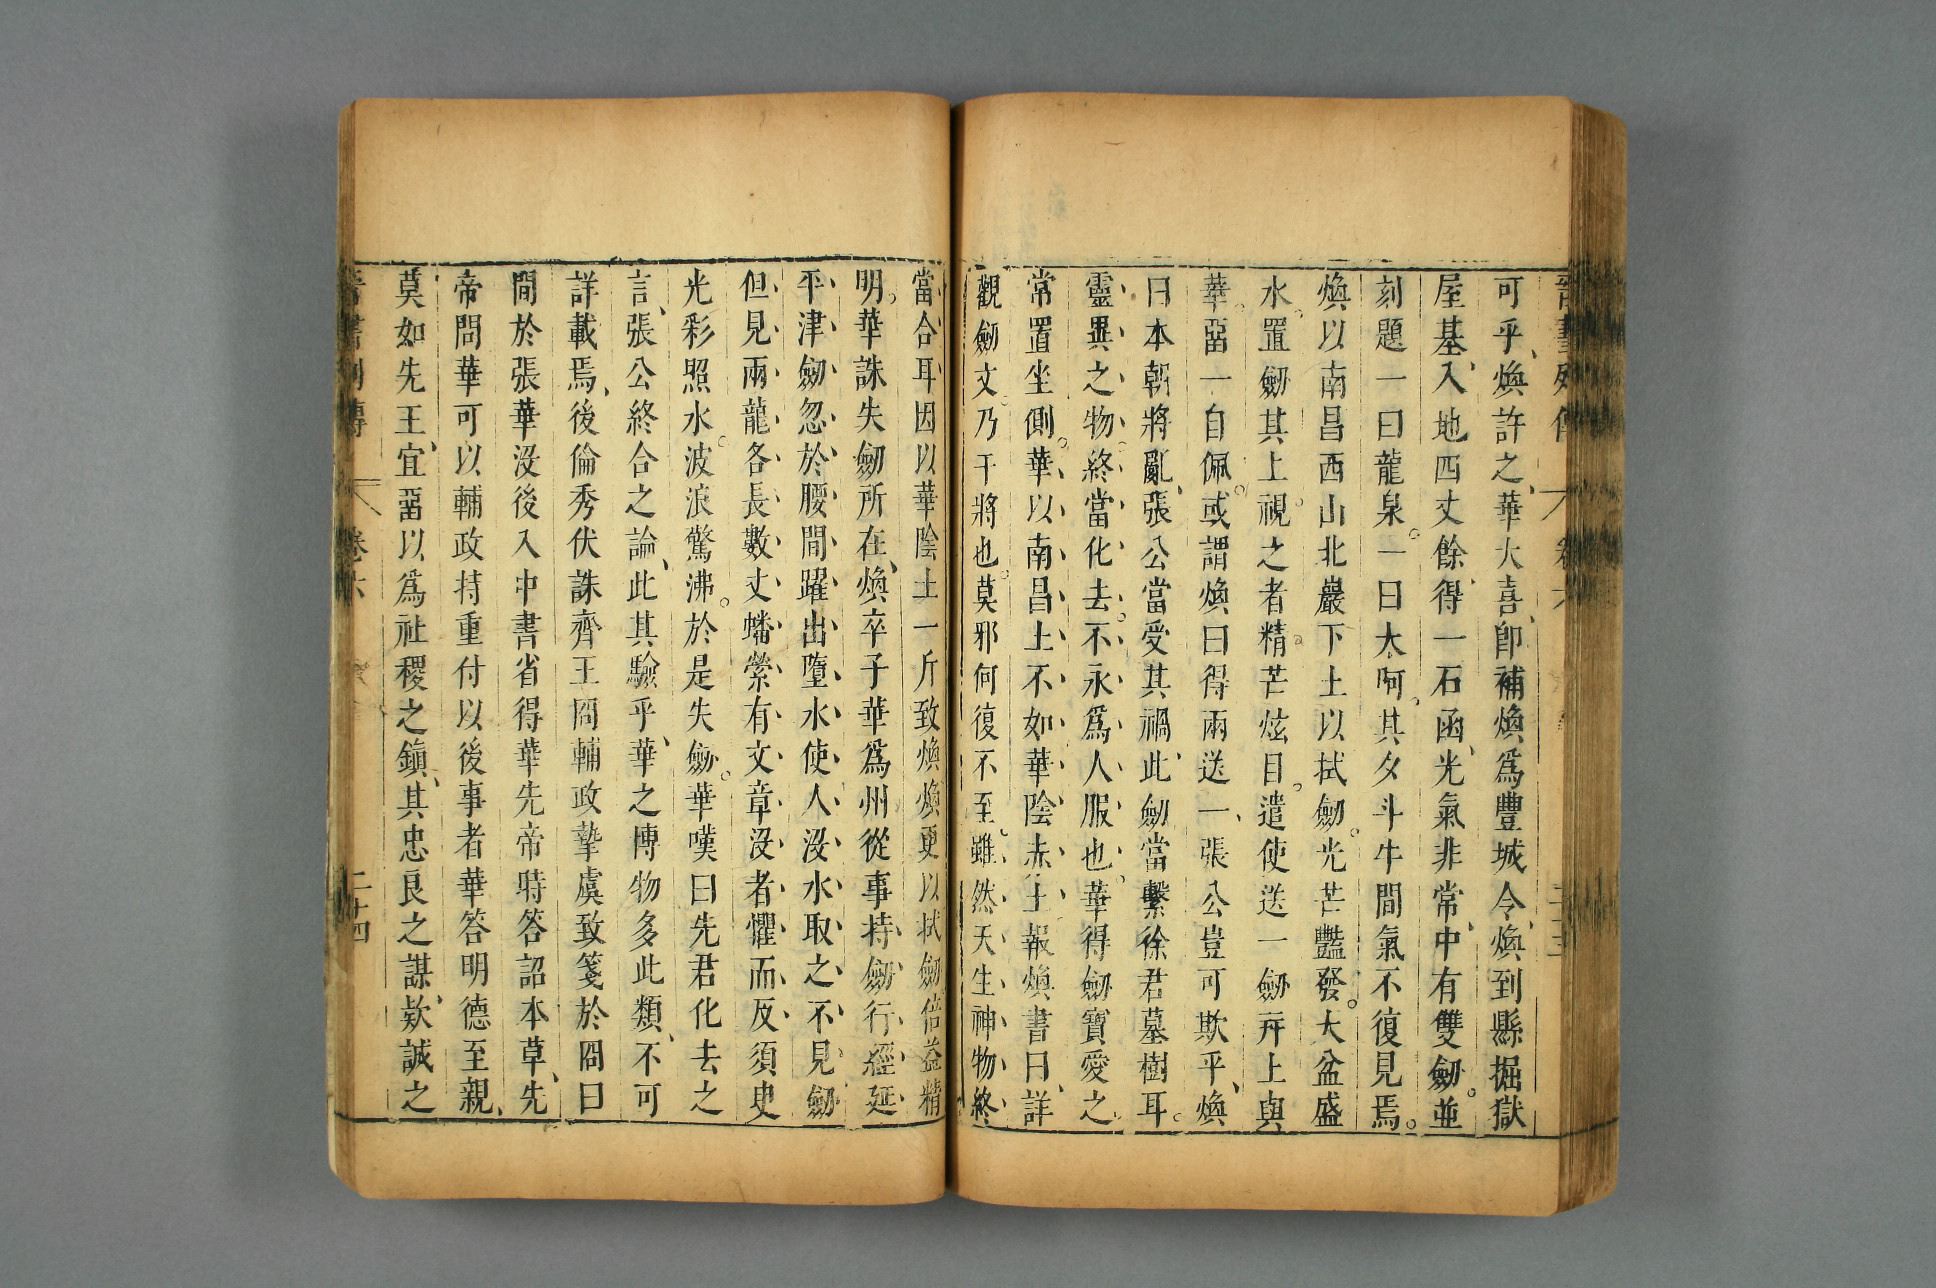 可乎、煥許之、華大喜、卽補煥爲豐城令、煥到縣掘獄
屋基、入地四丈餘、得一石函、光氣非常、中有雙劒。並
刻題一曰龍泉。一曰太阿。其夕斗牛間氣不復見焉。
煥以南昌西山北巖下土以拭劒。光芒豔發。大盆盛
水。置劒其上。視之者精芒炫目。遣使送一劒幷土與
華。畱一自佩。或謂煥曰得兩送一、張公豈可欺乎、煥
曰本朝將亂、張公當受其禍、此劒當繫徐君墓樹耳。
靈異之物、終當化去。不永爲人服也。華得劒寶愛之
常置坐側。華以南昌土不如華陰赤土、報煥書曰、詳
觀劒文。乃干將也。莫邪何復不至。雖然天生神物終
當合耳因以華陰土一斤致煥煥更以拭劒倍益精
明。華誅失劒所在、煥卒子華爲州從事持劒行經延
平津劒忽於腰間躍出墮水使人沒水取之不見劒
但見兩龍各長數丈蟠縈有文章沒者懼而反須臾
光彩照水。波浪驚沸。於是失劒。華嘆曰先君化去之
言、張公終合之論、此其驗乎、華之博物多此類、不可
詳載焉、後倫秀伏誅齊王冏輔政摯虞致箋於冏曰
間於張華沒後入中書省得華先帝時答詔本草、先
帝問華可以輔政持重付以後事者華答明德至親、
莫如先王、宜畱以爲社稷之鎭、其忠良之謀、欵誠之
晉書列傳
卷六
二十四